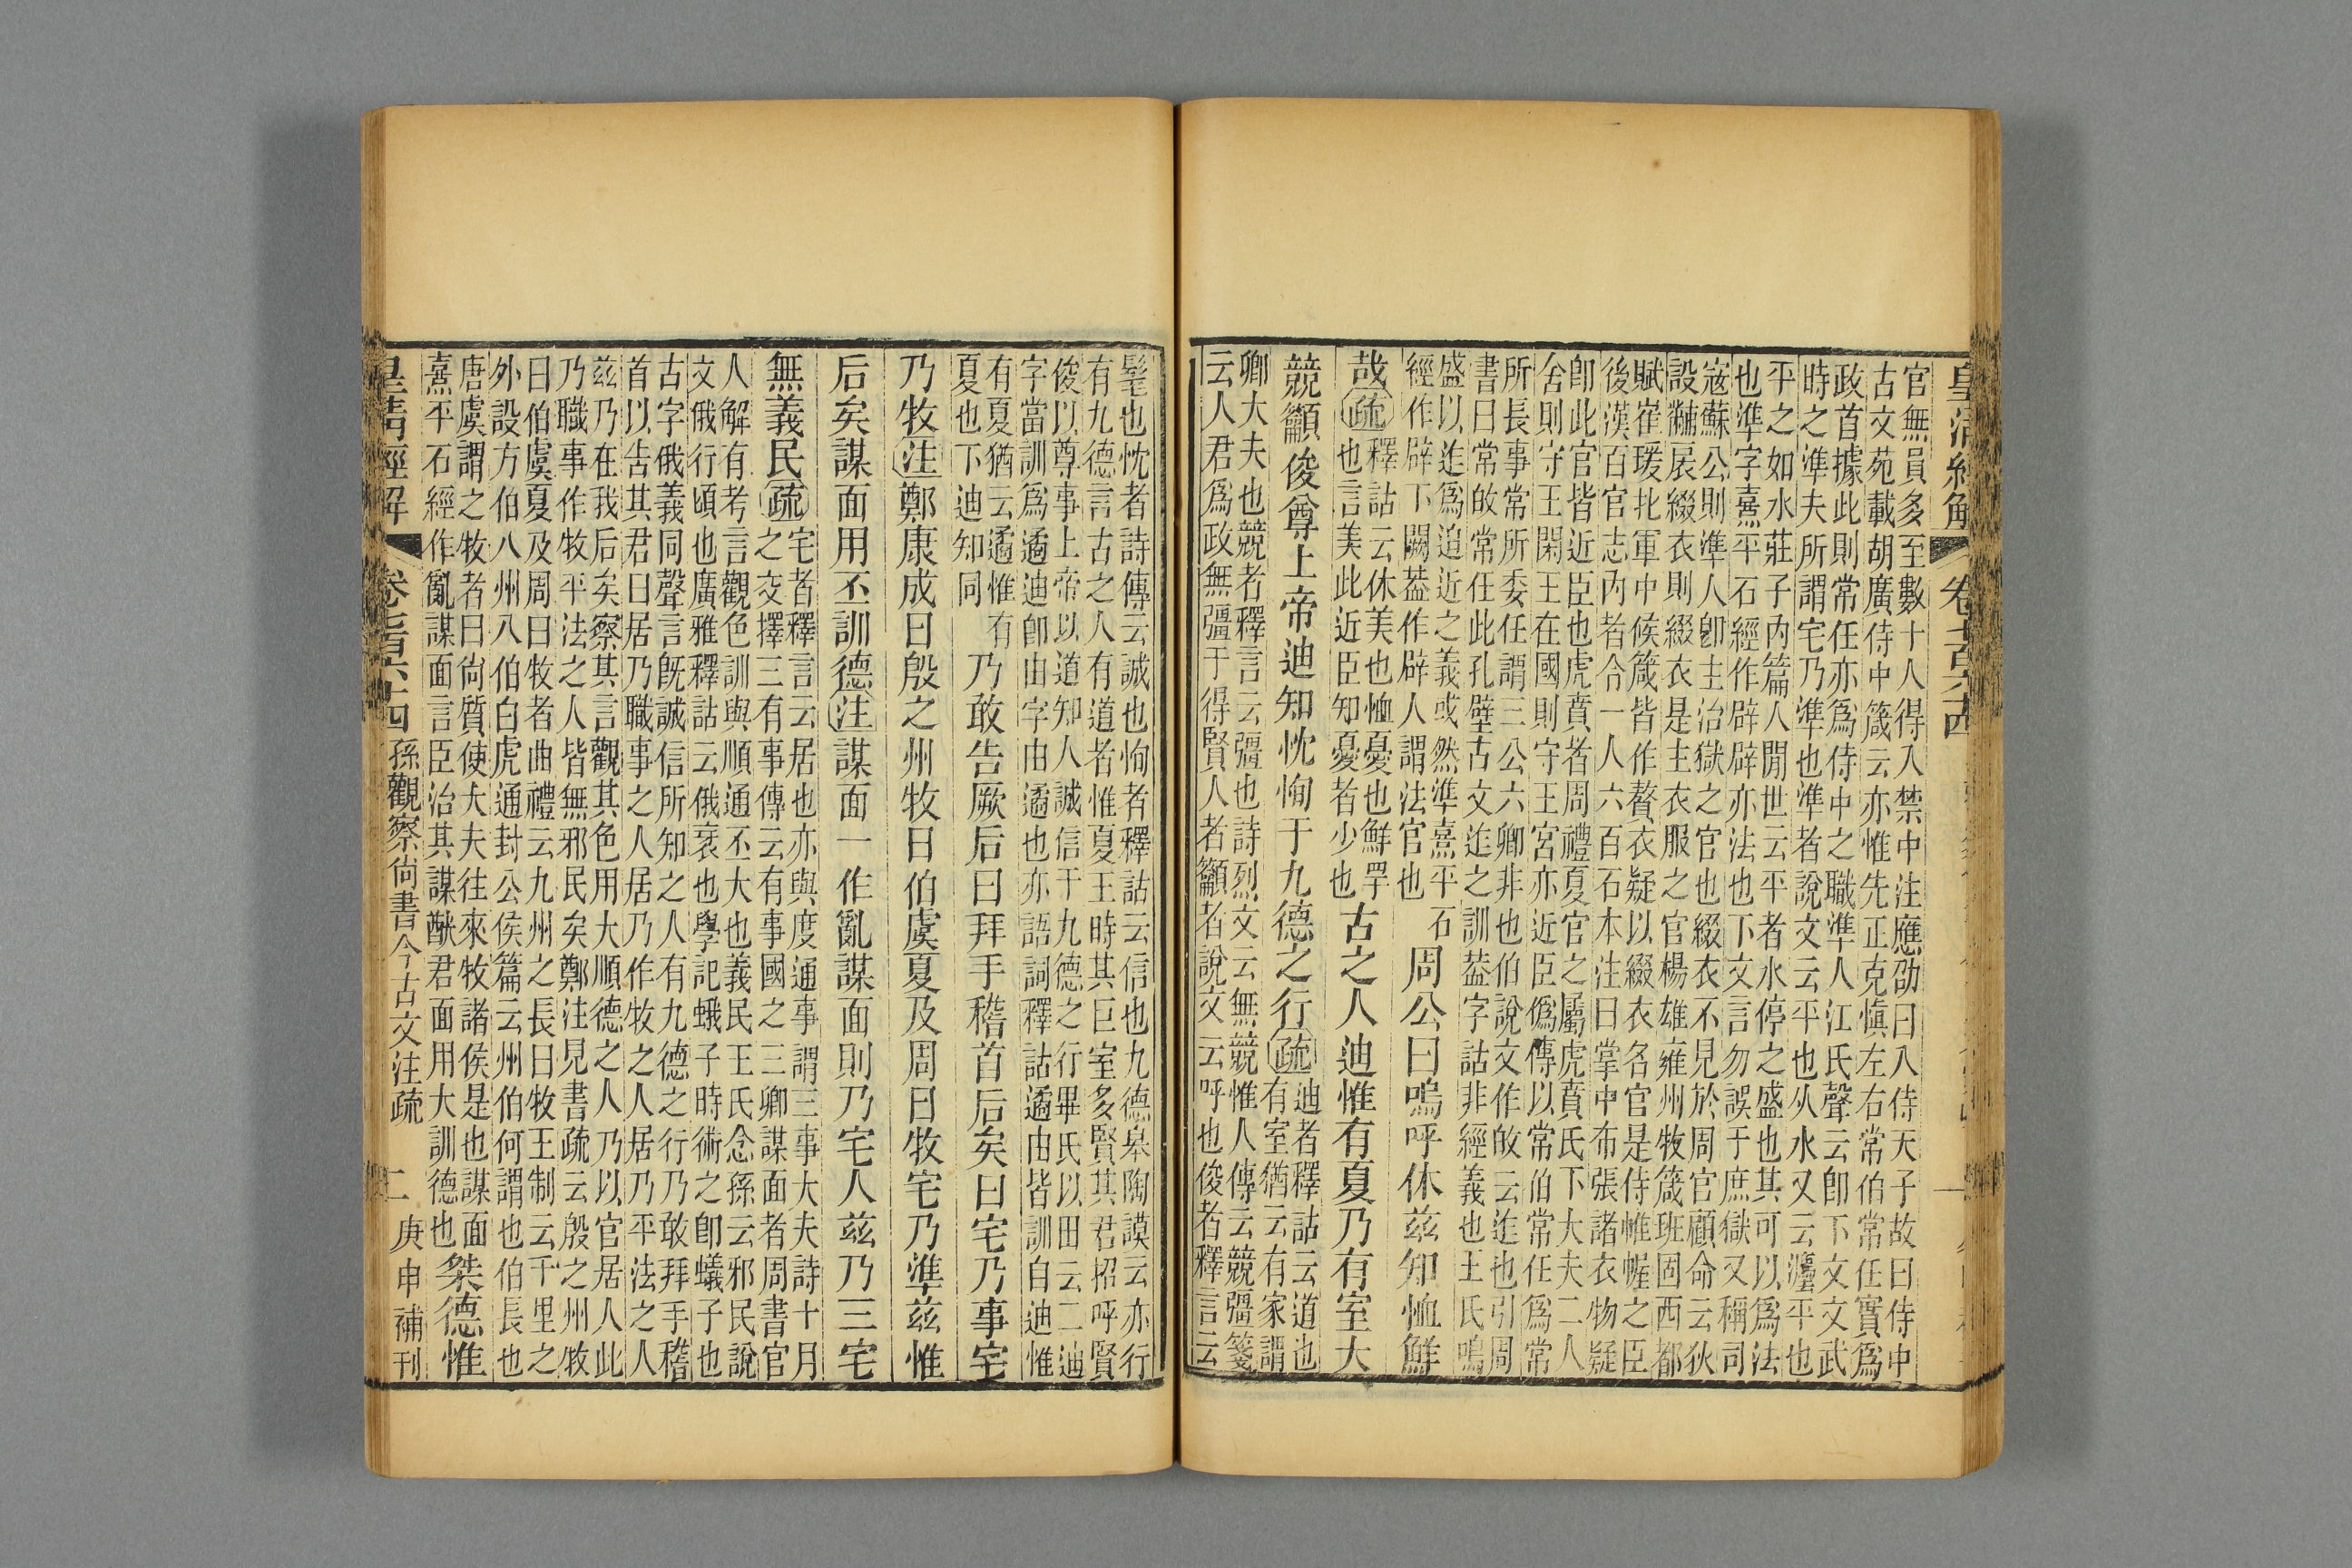 皇清經解
官無員多至數十人得入禁中注應劭曰入侍天子故曰侍中
古文苑載胡廣侍中箴云亦惟先正克愼左右常伯常任實爲
政首據此則常任亦爲侍中之職準人江氏聲云卽下文文武
時之準夫所謂宅乃準也準者說文云平也从水又云灋平也
平之如水莊子內篇人閒世云平者水停之盛也其可以爲法
也準字熹平石經作辟辟亦法也下文言勿誤于庶獄又稱司
寇蘇公則準人卽主治獄之官也綴衣不見於周官顧命云狄
設黼扆綴衣則綴衣是主衣服之官楊雄雍州牧箴班固西都
賦崔瑗北軍中候箴皆作贅衣疑以綴衣名官是侍帷幄之臣
後漢百官志內者令一人六百石本注曰掌中布張諸衣物疑
卽此官皆近臣也虎賁者周禮夏官之屬虎賁氏下大夫二人
舍則守王閑王在國則守王宮亦近臣僞傳以常伯常任爲常
所長事常所委任謂三公六卿非也伯說文作敀云迮也引周
書曰常敀常任此孔壁古文迮之訓葢字詁非經義也王氏鳴
盛以迮爲迫近之義或然準熹平石
經作辟下闕葢作辟人謂法官也
周公曰嗚呼休茲知恤鮮
哉疏釋詁云休美也恤憂也鮮罕
也言美此近臣知憂者少也
古之人迪惟有夏乃有室大
競籲俊尊上帝迪知忱恂于九德之行疏迪者釋詁云道也
有室猶云有家謂
卿大夫也競者釋言云彊也詩烈文云無競惟人傳云競彊箋
云人君爲政無彊于得賢人者籲者說文云呼也俊者釋言云
髦也忱者詩傳云誠也恂者釋詁云信也九德皋陶謨云亦行
有九德言古之人有道者惟夏王時其巨室多賢其君招呼賢
俊以尊事上帝以道知人誠信于九德之行畢氏以田云二迪
字當訓爲遹遹迪卽由字由遹也亦語詞釋詁遹由皆訓自迪惟
有夏猶云遹惟有
夏也下迪知同
乃敢告厥后曰拜手稽首后矣曰宅乃事宅
乃牧注鄭康成曰殷之州牧曰伯虞夏及周曰牧宅乃準茲惟
后矣謀面用丕訓德注謀面一作亂謀面則乃宅人茲乃三宅
無義民疏宅者釋言云居也亦與度通事謂三事大夫詩十月
之交擇三有事傳云有事國之三卿謀面者周書官
人解有考言觀色訓與順通丕大也義民王氏念孫云邪民說
文俄行頃也廣雅釋詁云俄衺也學記蛾子時術之卽蟻子也
古字俄義同聲言旣誠信所知之人有九德之行乃敢拜手稽
首以告其君曰居乃職事之人居乃作牧之人居乃平法之人
茲乃在我后矣察其言觀其色用大順德之人乃以官居人此
乃職事作牧平法之人皆無邪民矣鄭注見書疏云殷之州牧
曰伯虞夏及周曰牧者曲禮云九州之長曰牧王制云千里之
外設方伯八州八伯白虎通封公侯篇云州伯何謂也伯長也
唐虞謂之牧者曰尙質使大夫往來牧諸侯是也謀面
熹平石經作亂謀面言臣治其謀猷君面用大訓德也
桀德惟
皇清經解 卷七百六十四 孫觀察尙書今古文注疏 二 庚申補刊